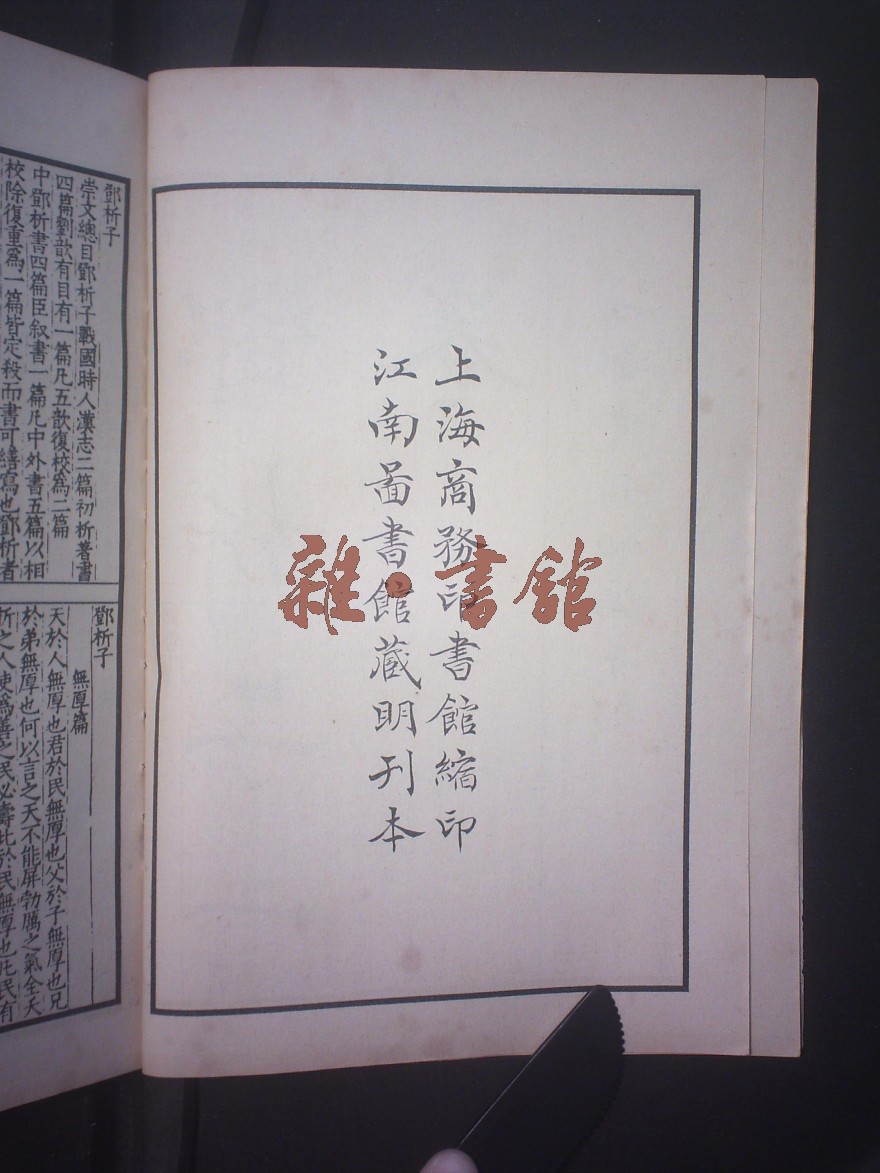 上海商務印書館縮印
江南啚書館藏明刊本
雜·書館
鄧析子
崇文總目鄧析子戰國時人漢志二篇初析著書
四篇劉歆有目有一篇凡五歆復校爲二篇
中鄧析書四篇臣叙書一篇凡中外書五篇以相
校除復重爲一篇皆定殺而書可繕寫也鄧析者
鄧析子
無厚篇
天於人無厚也君於民無厚也父於子無厚也兄
於弟無厚也何以言之天不能屏勃厲之氣全夭
折之人使爲善之民必壽此於民無厚也凡民有